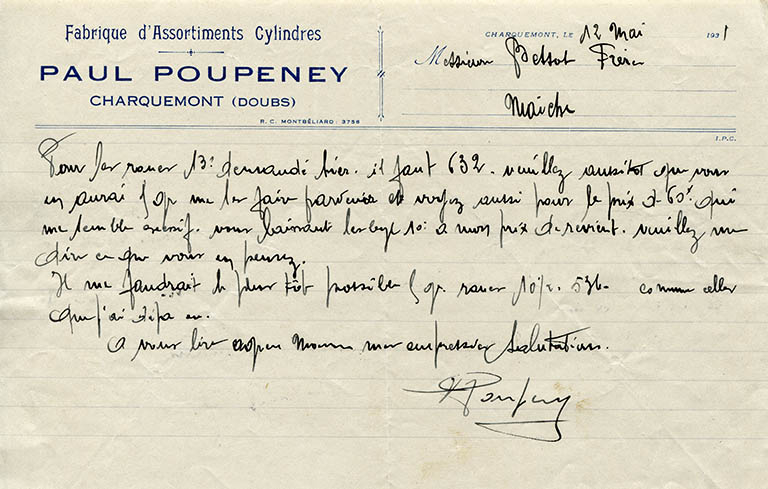 Fabrique d'Assortiments Cylindres
PAUL POUPENEY
CHARQUEMONT (DOUBS)
R. C. MONTBÉLIARD: 3756
CHARQUEMONT, LE 12 Mai 1931
Messieurs Bessot Frères
Maîche
I.P.C.
Pour les roues 13‴ demandé hier. il faut 632. veuillez aussitot que vous
en aurai 6 gr me les faire parvenir et voyez aussi pour le prix de 60f qui
me semble excessif. vous laissant les cyl 10‴ a mon prix de revient. veuillez me
dire ce que vous en pensez.
Il me faudrait le plus tôt possible 6 gr. roues 10½. 536. comme celles
que j'ai déjà eu.
A vous lire agréez Messieurs mes empressées Salutations.
Poupeney